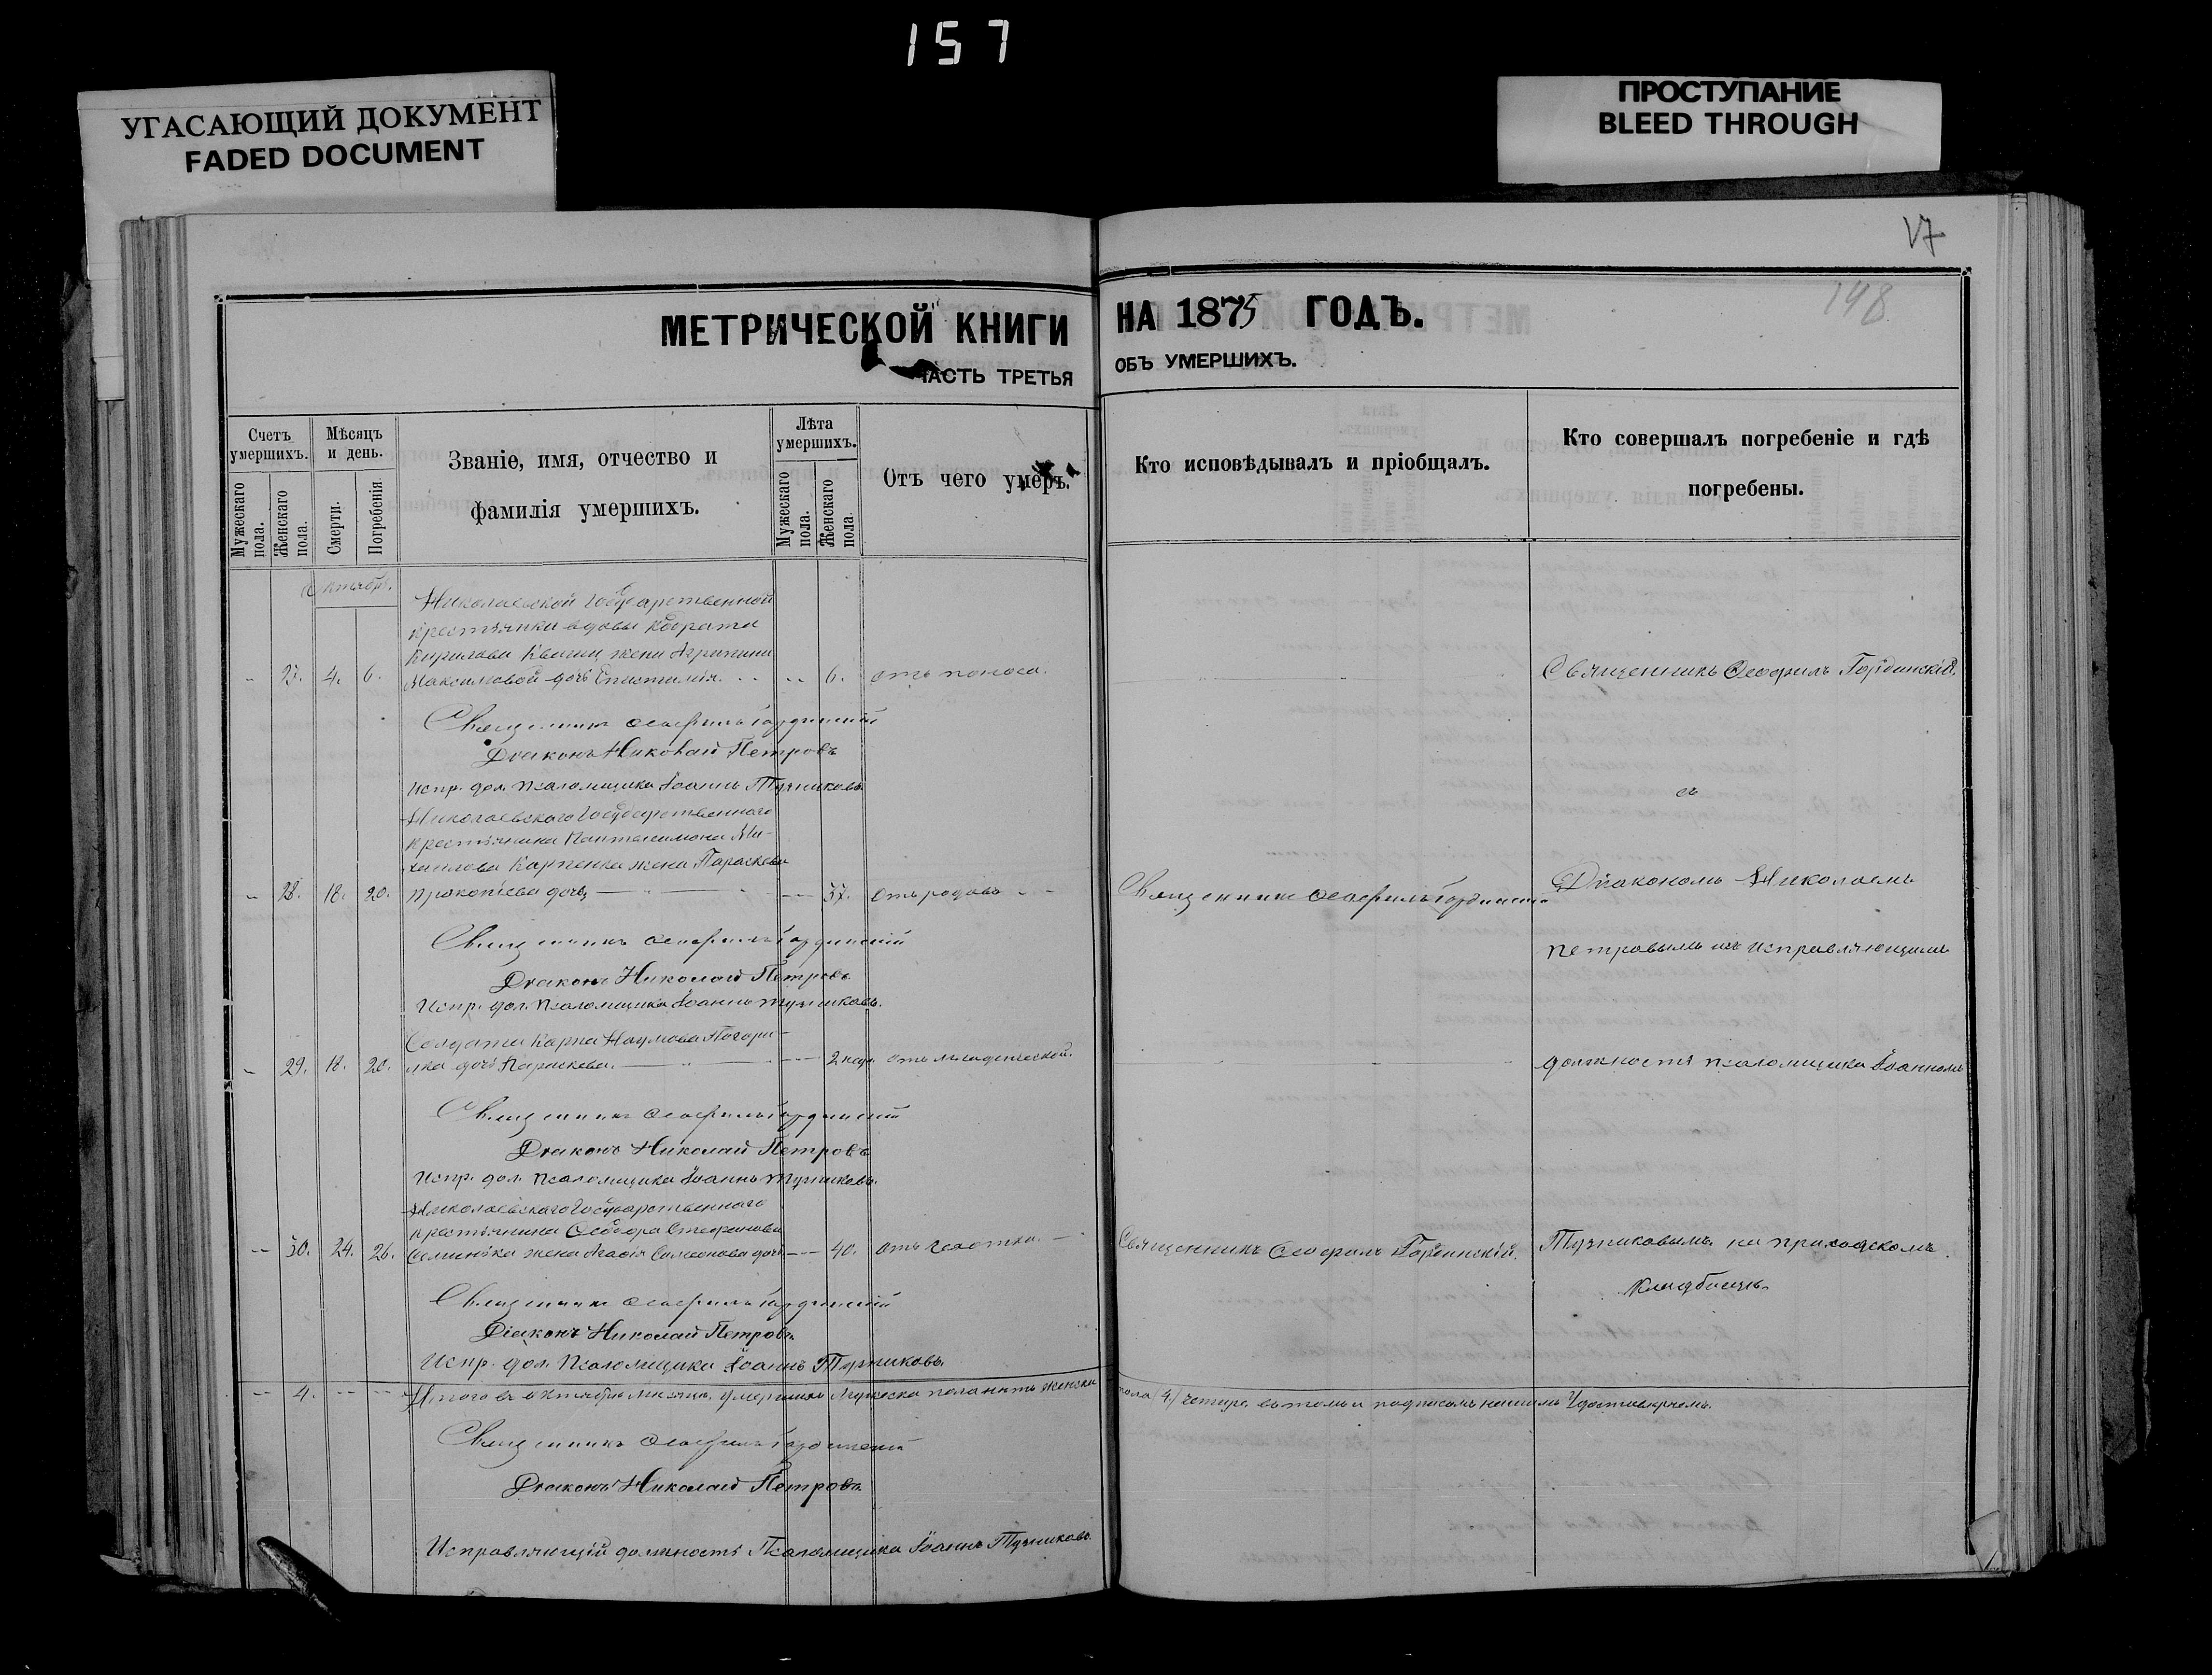 157
УГАСАЮЩИЙ ДОКУМЕНТ
FADED DOCUMENT
ПРОСТУПАНИЕ
BLEED THROUGH
17
148
МЕТРИЧЕСКОЙ КНИГИ НА 1875 ГОДЪ.
ЧАСТЬ ТРЕТЬЯ ОБЪ УМЕРШИХЪ.
Счетъ умершихъ.
Мужескаго пола.
Женскаго пола.
Мѣсяцъ и день.
Смерти.
Погребенія.
Званіе, имя, отчество и
фамилія умершихъ.
Лѣта умершихъ.
Мужескаго пола.
Женскаго пола.
Отъ чего умеръ.
Кто исповѣдывалъ и пріобщалъ.
Кто совершалъ погребеніе и гдѣ
погребены.
Октябрь.
Николаевской Государственной
крестьянки вдовы
Кирилова жены Агрипини
27. 4. 6. Максимовой дочь Епистимія. 6. отъ поноса.
Священникъ Ѳеофилъ Гординскій.
Священникъ Ѳеофилъ Гординскій
Діаконъ Николай Петровъ
Испр. дол. Псаломщика Іоаннъ Тузниковъ
Николаевскаго Государственнаго
крестьянина Пантелимона Ми-
хаилова Карпенка жена Параскева
28. 18. 20. Прокопіева дочь 37. отъ родовъ
Священникъ Ѳеофилъ Гординскій
съ
Діакономъ Николаемъ
Священникъ Ѳеофилъ Гординскій
Діаконъ Николай Петровъ
Испр. дол. Псаломщика Іоаннъ Тузниковъ.
Петровымъ и исправляющимъ
Солдата Карпа Наумова Погори-
29. 18. 20. лка дочь Параскева. 2 нед. отъ младенческой.
должность псаломщика Іоанномъ
Священникъ Ѳеофилъ Гординскій
Діаконъ Николай Петровъ
Испр. дол. Псаломщика Іоаннъ Тузниковъ.
Николаевскаго Государственнаго
крестьянина Ѳеодора Стефанова
30. 24. 26. жена Агафія Симеонова дочь 40. отъ чахотки.
Священникъ Ѳеофилъ Гординскій.
Тузниковымъ на приходскомъ
кладбищѣ.
Священникъ Ѳеофилъ Гординскій
Діаконъ Николай Петровъ
Испр. дол. Псаломщика Іоаннъ Тузниковъ.
4. Итого въ Октябрѣ мѣсяцѣ умершихъ мужеска пола нѣтъ женска пола (4) четыре въ томъ и подписомъ нашимъ удостовѣряемъ.
Священникъ Ѳеофилъ Гординскій
Діаконъ Николай Петровъ
Исправляющій должность Псаломщика Іоаннъ Тузниковъ.